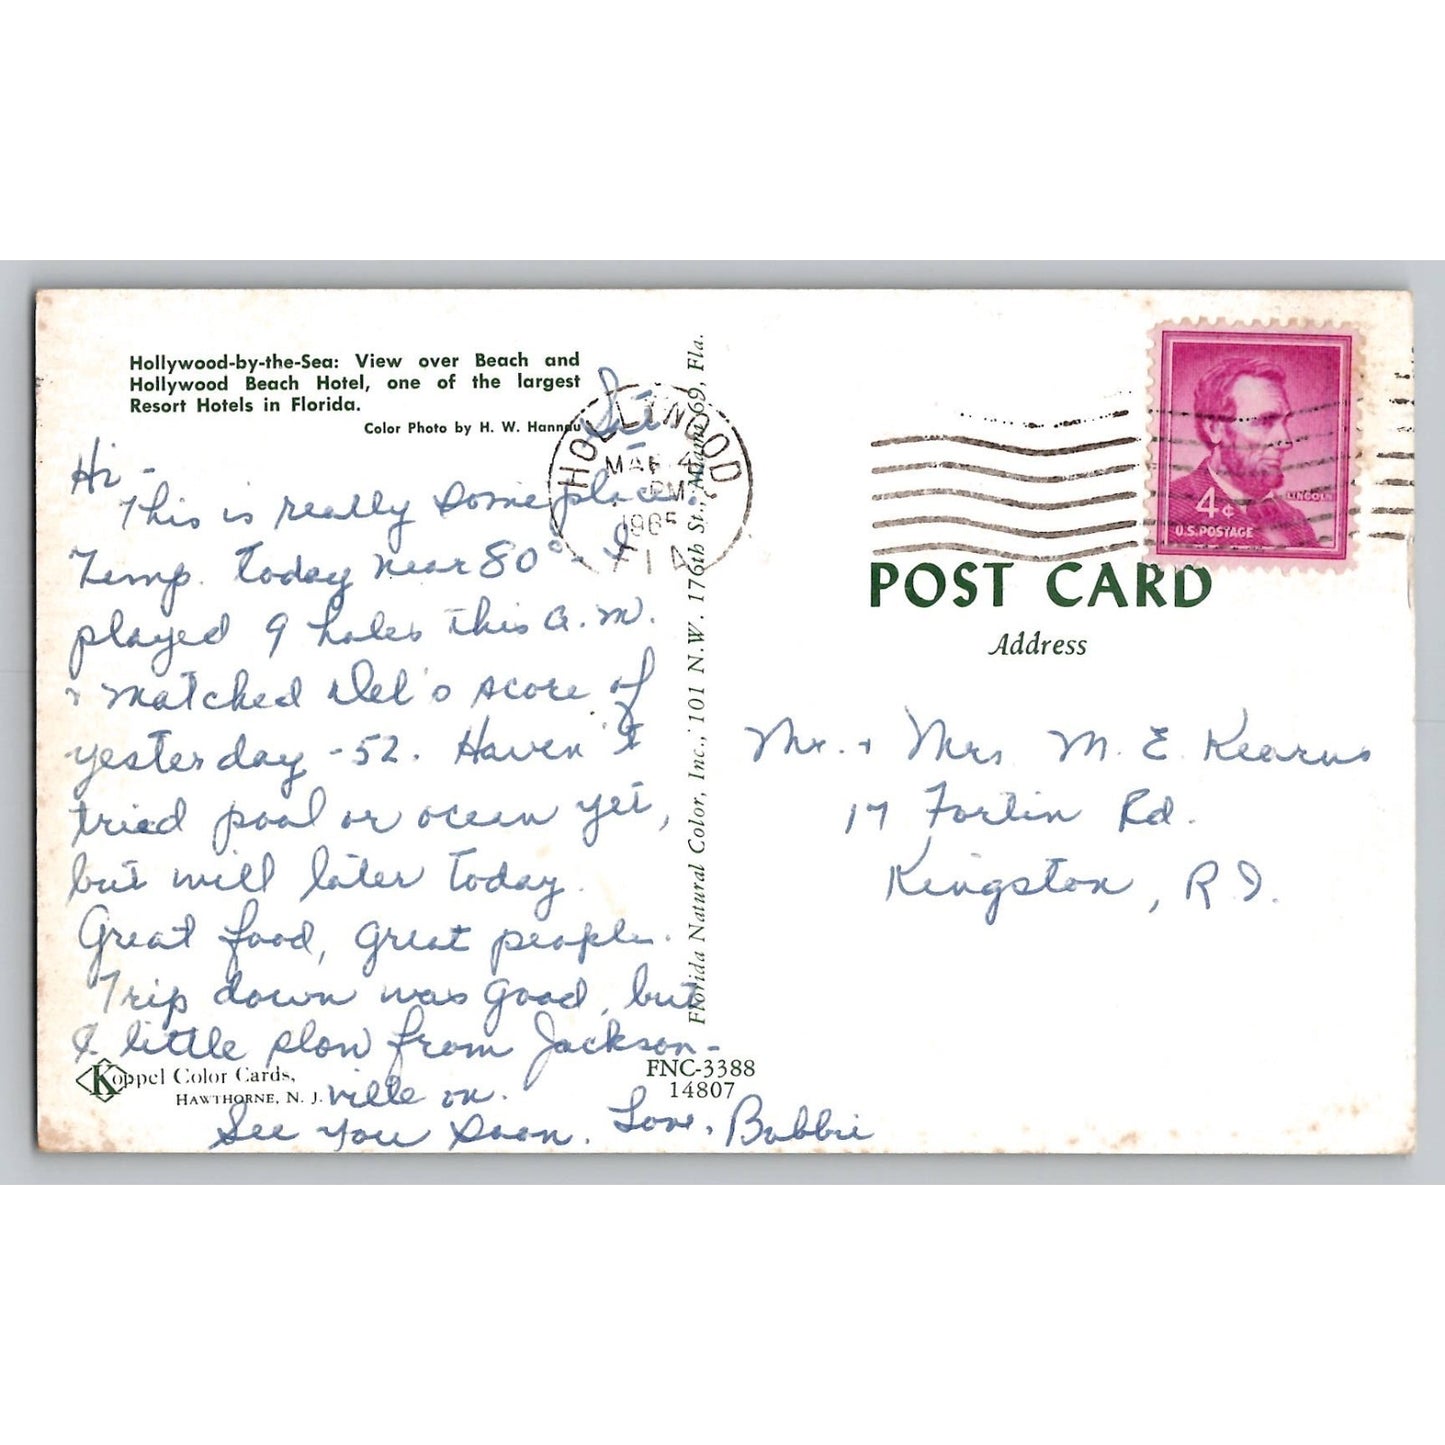 Hollywood-by-the-Sea: View over Beach and
Hollywood Beach Hotel, one of the largest
Resort Hotels in Florida.
Color Photo by H. W. Hannau
Sat.
Hi -
This is really some place.
Temp. today near 80° - I
played 9 holes this a.m.
+ matched Del's score of
yesterday - 52. Haven't
tried pool or ocean yet,
but will later today.
Great food, great people.
Trip down was good, but
a little slow from Jackson-
ville on.
See you soon. Love, Bobbie
Koppel Color Cards,
HAWTHORNE, N. J.
FNC-3388
14807
Florida Natural Color, Inc., 101 N.W. 176th St., Miami 69, Fla.
HOLLYWOOD
MAR
PM
1965
FLA
LINCOLN
4¢
U.S. POSTAGE
POST CARD
Address
Mr. + Mrs M. E. Kearns
17 Fortin Rd.
Kingston, R I.